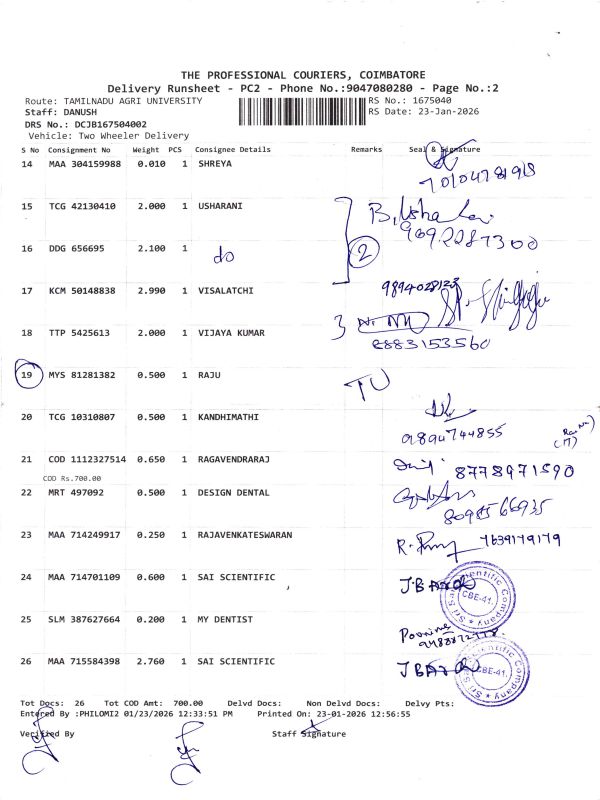 THE PROFESSIONAL COURIERS, COIMBATORE
Delivery Runsheet - PC2 - Phone No.:9047080280 - Page No.:2
Route: TAMILNADU AGRI UNIVERSITY RS No.: 1675040
Staff: DANUSH RS Date: 23-Jan-2026
DRS No.: DCJB167504002
Vehicle: Two Wheeler Delivery
S No Consignment No Weight PCS Consignee Details Remarks Seal & Signature
14 MAA 304159988 0.010 1 SHREYA
15 TCG 42130410 2.000 1 USHARANI
16 DDG 656695 2.100 1 do 2
17 KCM 50148838 2.990 1 VISALATCHI 9894028123
18 TTP 5425613 2.000 1 VIJAYA KUMAR 3
8883153560
19 MYS 81281382 0.500 1 RAJU TU
20 TCG 10310807 0.500 1 KANDHIMATHI
9894744855
21 COD 1112327514 0.650 1 RAGAVENDRARAJ 8778971590
COD Rs.700.00
22 MRT 497092 0.500 1 DESIGN DENTAL
8098566935
23 MAA 714249917 0.250 1 RAJAVENKATESWARAN 7639179179
24 MAA 714701109 0.600 1 SAI SCIENTIFIC
CBE-41.
25 SLM 387627664 0.200 1 MY DENTIST
26 MAA 715584398 2.760 1 SAI SCIENTIFIC
CBE-41.
Tot Docs: 26 Tot COD Amt: 700.00 Delvd Docs: Non Delvd Docs: Delvy Pts:
Entered By :PHILOMI2 01/23/2026 12:33:51 PM Printed On: 23-01-2026 12:56:55
Verified By Staff Signature